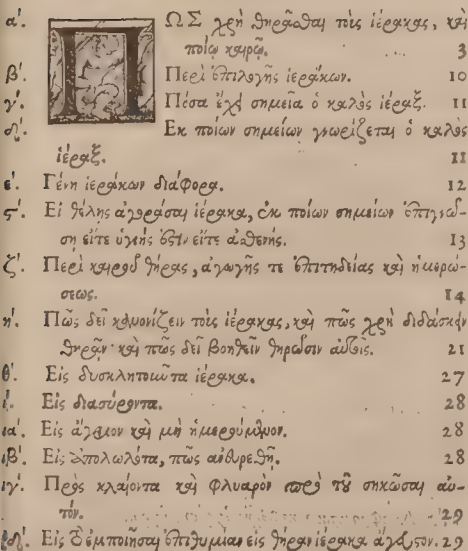 α'. ΠΩΣ χρὴ θηρᾶσθαι τοὺς ἱέρακας, καὶ
ποίῳ καιρῷ. 3
β'. Περὶ ἐπιλογῆς ἱεράκων. 10
γ'. Πόσα ἔχει σημεῖα ὁ καλὸς ἱέραξ. 11
δ'. Ἐκ ποίων σημείων γνωρίζεται ὁ καλὸς
ἱέραξ. 11
ε'. Γένη ἱεράκων διάφορα. 12
ϛ'. Εἰ θέλῃς ἀγοράσαι ἱέρακα, ἐκ ποίων σημείων ἐπιγνώ-
σῃ εἴτε ὑγιής ἐστιν εἴτε ἀσθενής. 13
ζ'. Περὶ καιροῦ θήρας, ἀγωγῆς τε ἐπιτηδείας καὶ ἡμερώ-
σεως. 14
η'. Πῶς δεῖ κανονίζειν τοὺς ἱέρακας, καὶ πῶς χρὴ διδάσκειν
θηρᾶν· καὶ πῶς δεῖ βοηθεῖν θηρῶσιν αὐτοῖς. 21
θ'. Εἰς δυσκλητοῦντα ἱέρακα. 27
ι'. Εἰς διασύροντα. 28
ια'. Εἰς ἄγριον καὶ μὴ ἡμερούμενον. 28
ιβ'. Εἰς ἀπολωλότα, πῶς εὑρεθῇ. 29
ιγ'. Πρὸς κλαίοντα καὶ φλυαρὸν παρὰ τὸ σηκῶσαι αὐ-
τόν. 29
ιδ'. Εἰς τὸ ἐμποιῆσαι ἐπιθυμίαν εἰς θήραν ἱέρακα ἄγαστον. 29